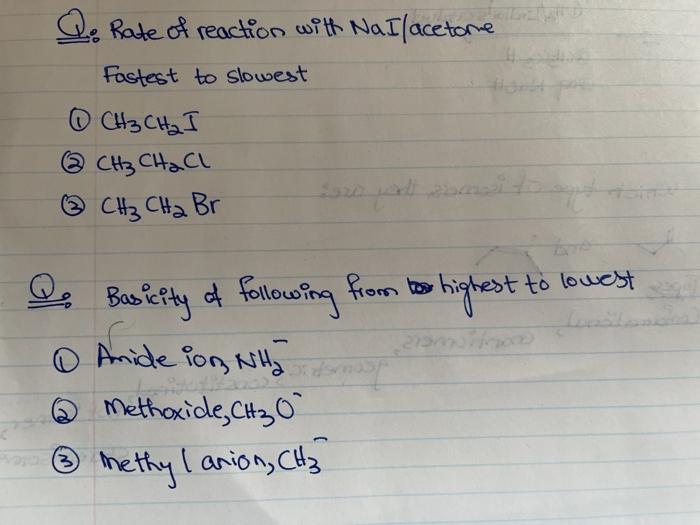 Q: Rate of reaction with NaI/acetone
Fastest to slowest
① CH₃CH₂I
② CH₃CH₂Cl
③ CH₃CH₂Br
Q: Basicity of following from highest to lowest
① Amide ion, NH₂⁻
② Methoxide, CH₃O⁻
③ methyl anion, CH₃⁻